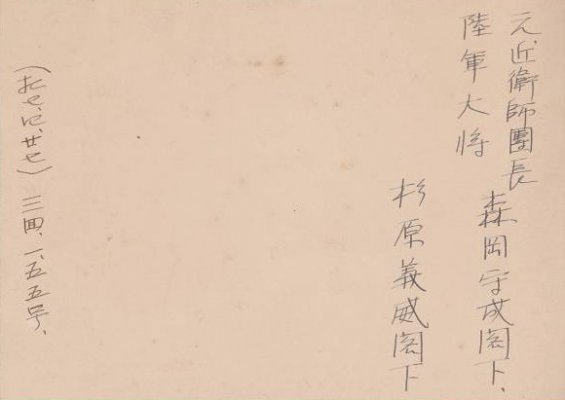 元近衛師團長
陸軍大将
森岡守成閣下、
杉原義威閣下
三四、一、五五号、